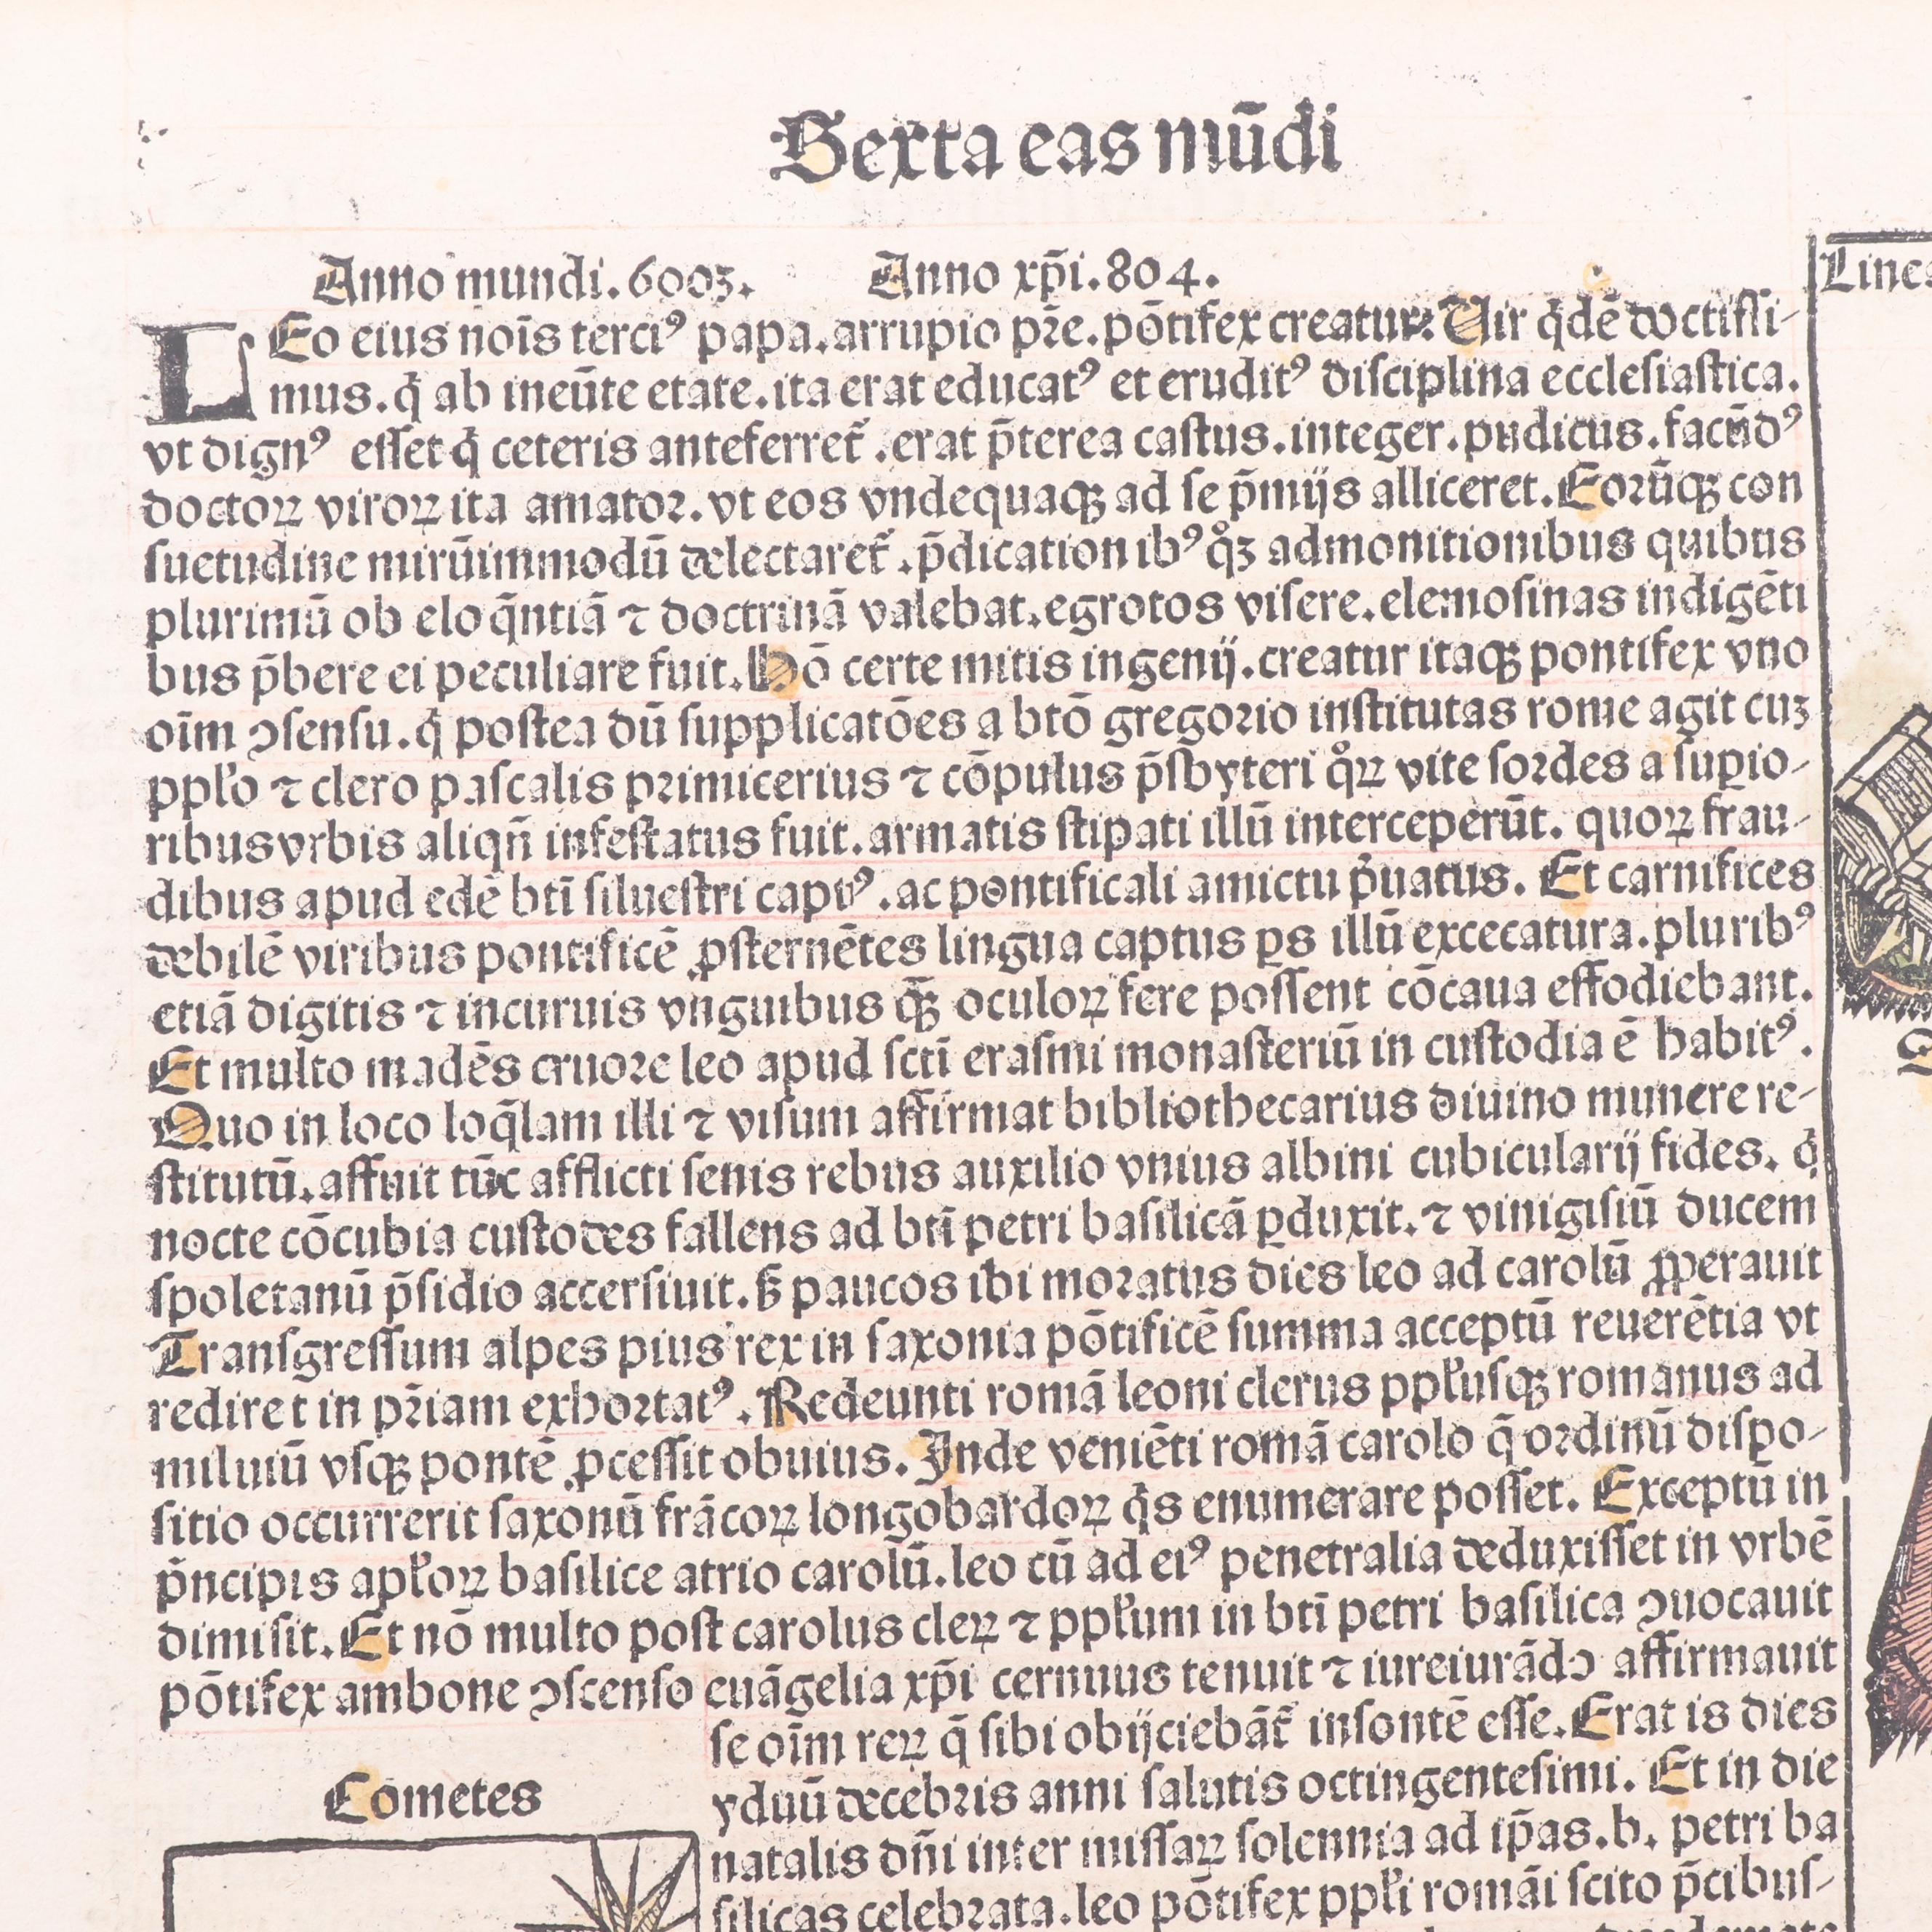 Sexta eas mūdi
Anno mundi.6003. Anno xp̄i.804.
Linea
LEo eius nōis terciꝰ papa.arrupio pr̄e.pōtifex creatur.Uir q̇dē doctissi-
mus.q̇ ab ineūte etate.ita erat educatꝰ et eruditꝰ disciplina ecclesiastica.
vt dignꝰ esset q̇ ceteris anteferret᷑.erat p̄terea castus.integer.pudicus.facūdꝰ
doctoꝝ viroꝝ ita amator.vt eos vndequaqꝫ ad se p̄mijs alliceret.Eorūqꝫ con
suetudine mirūimmodū delectaret᷑.p̄dicationibꝰ qͦꝫ admonitionibus quibus
plurimū ob eloq̄ntiā ⁊ doctrinā valebat.egrotos visere.elemosinas indigēti
bus p̄bere ei peculiare fuit.Hō certe mitis ingenij.creatur itaqꝫ pontifex vno
oīm ꝯsensu.q̇ postea dū supplicatōes a btō gregorio institutas rome agit cuꝫ
ppl̓o ⁊ clero pascalis primicerius ⁊ cōpulus p̄sbyteri qͦꝝ vite sordes a supio-
ribus vrbis aliqn̄ infestatus fuit.armatis stipati illū interceperūt. quoꝝ frau-
dibus apud edē btī siluestri captꝰ.ac pontificali amictu p̓uatus. Et carnifices
debilē viribus pontificē ꝓsternētes lingua captus ꝑs illū excecatura.pluribꝰ
etiā digitis ⁊ incuruis vnguibus qꝫ̄ oculoꝝ fere possent cōcaua effodiebant.
Et multo madēs cruore leo apud sctī erasmi monasteriū in custodia ē habitꝰ.
Quo in loco loq̄lam illi ⁊ visum affirmat bibliothecarius diuino munere re-
stitutū.affuit tūc afflicti senis rebus auxilio vnius albini cubicularij fides. q̇
nocte cōcubia custodes fallens ad btī petri basilicā ꝑduxit.⁊ vinigisiū ducem
spoletanū p̄sidio accersiuit.ẞ paucos ibi moratus dies leo ad carolū ꝓperauit
Transgressum alpes pius rex in saxonia pōtificē summa acceptū reuerētia vt
rediret in pr̄iam exhortatꝰ.Redeunti romā leoni clerus ppl̓usqꝫ romanus ad
miluiū vsqꝫ pontē ꝓcessit obuius. Inde veniēti romā carolo q̄ ordinū dispo-
sitio occurrerit saxonū frācoꝝ longobardoꝝ q̇s enumerare posset. Exceptū in
p̓ncipis apl̓oꝝ basilice atrio carolū.leo cū ad eiꝰ penetralia deduxisset in vrbē
dimisit.Et nō multo post carolus cleꝝ ⁊ ppl̓um in btī petri basilica ꝯuocauit
pōtifex ambone ꝯscenso euāgelia xp̄i cernuus tenuit ⁊ iureiurādo affirmauit
se oīm reꝝ q̄ sibi obijciebāt᷑ insontē esse.Erat is dies
yduū decēbris anni salutis octingentesimi. Et in die
natalis dn̄i inter missaꝝ solennia ad ip̄as.b. petri ba
silicas celebrata.leo pōtifex ppl̓i romāi scito p̄cibus-
Cometes